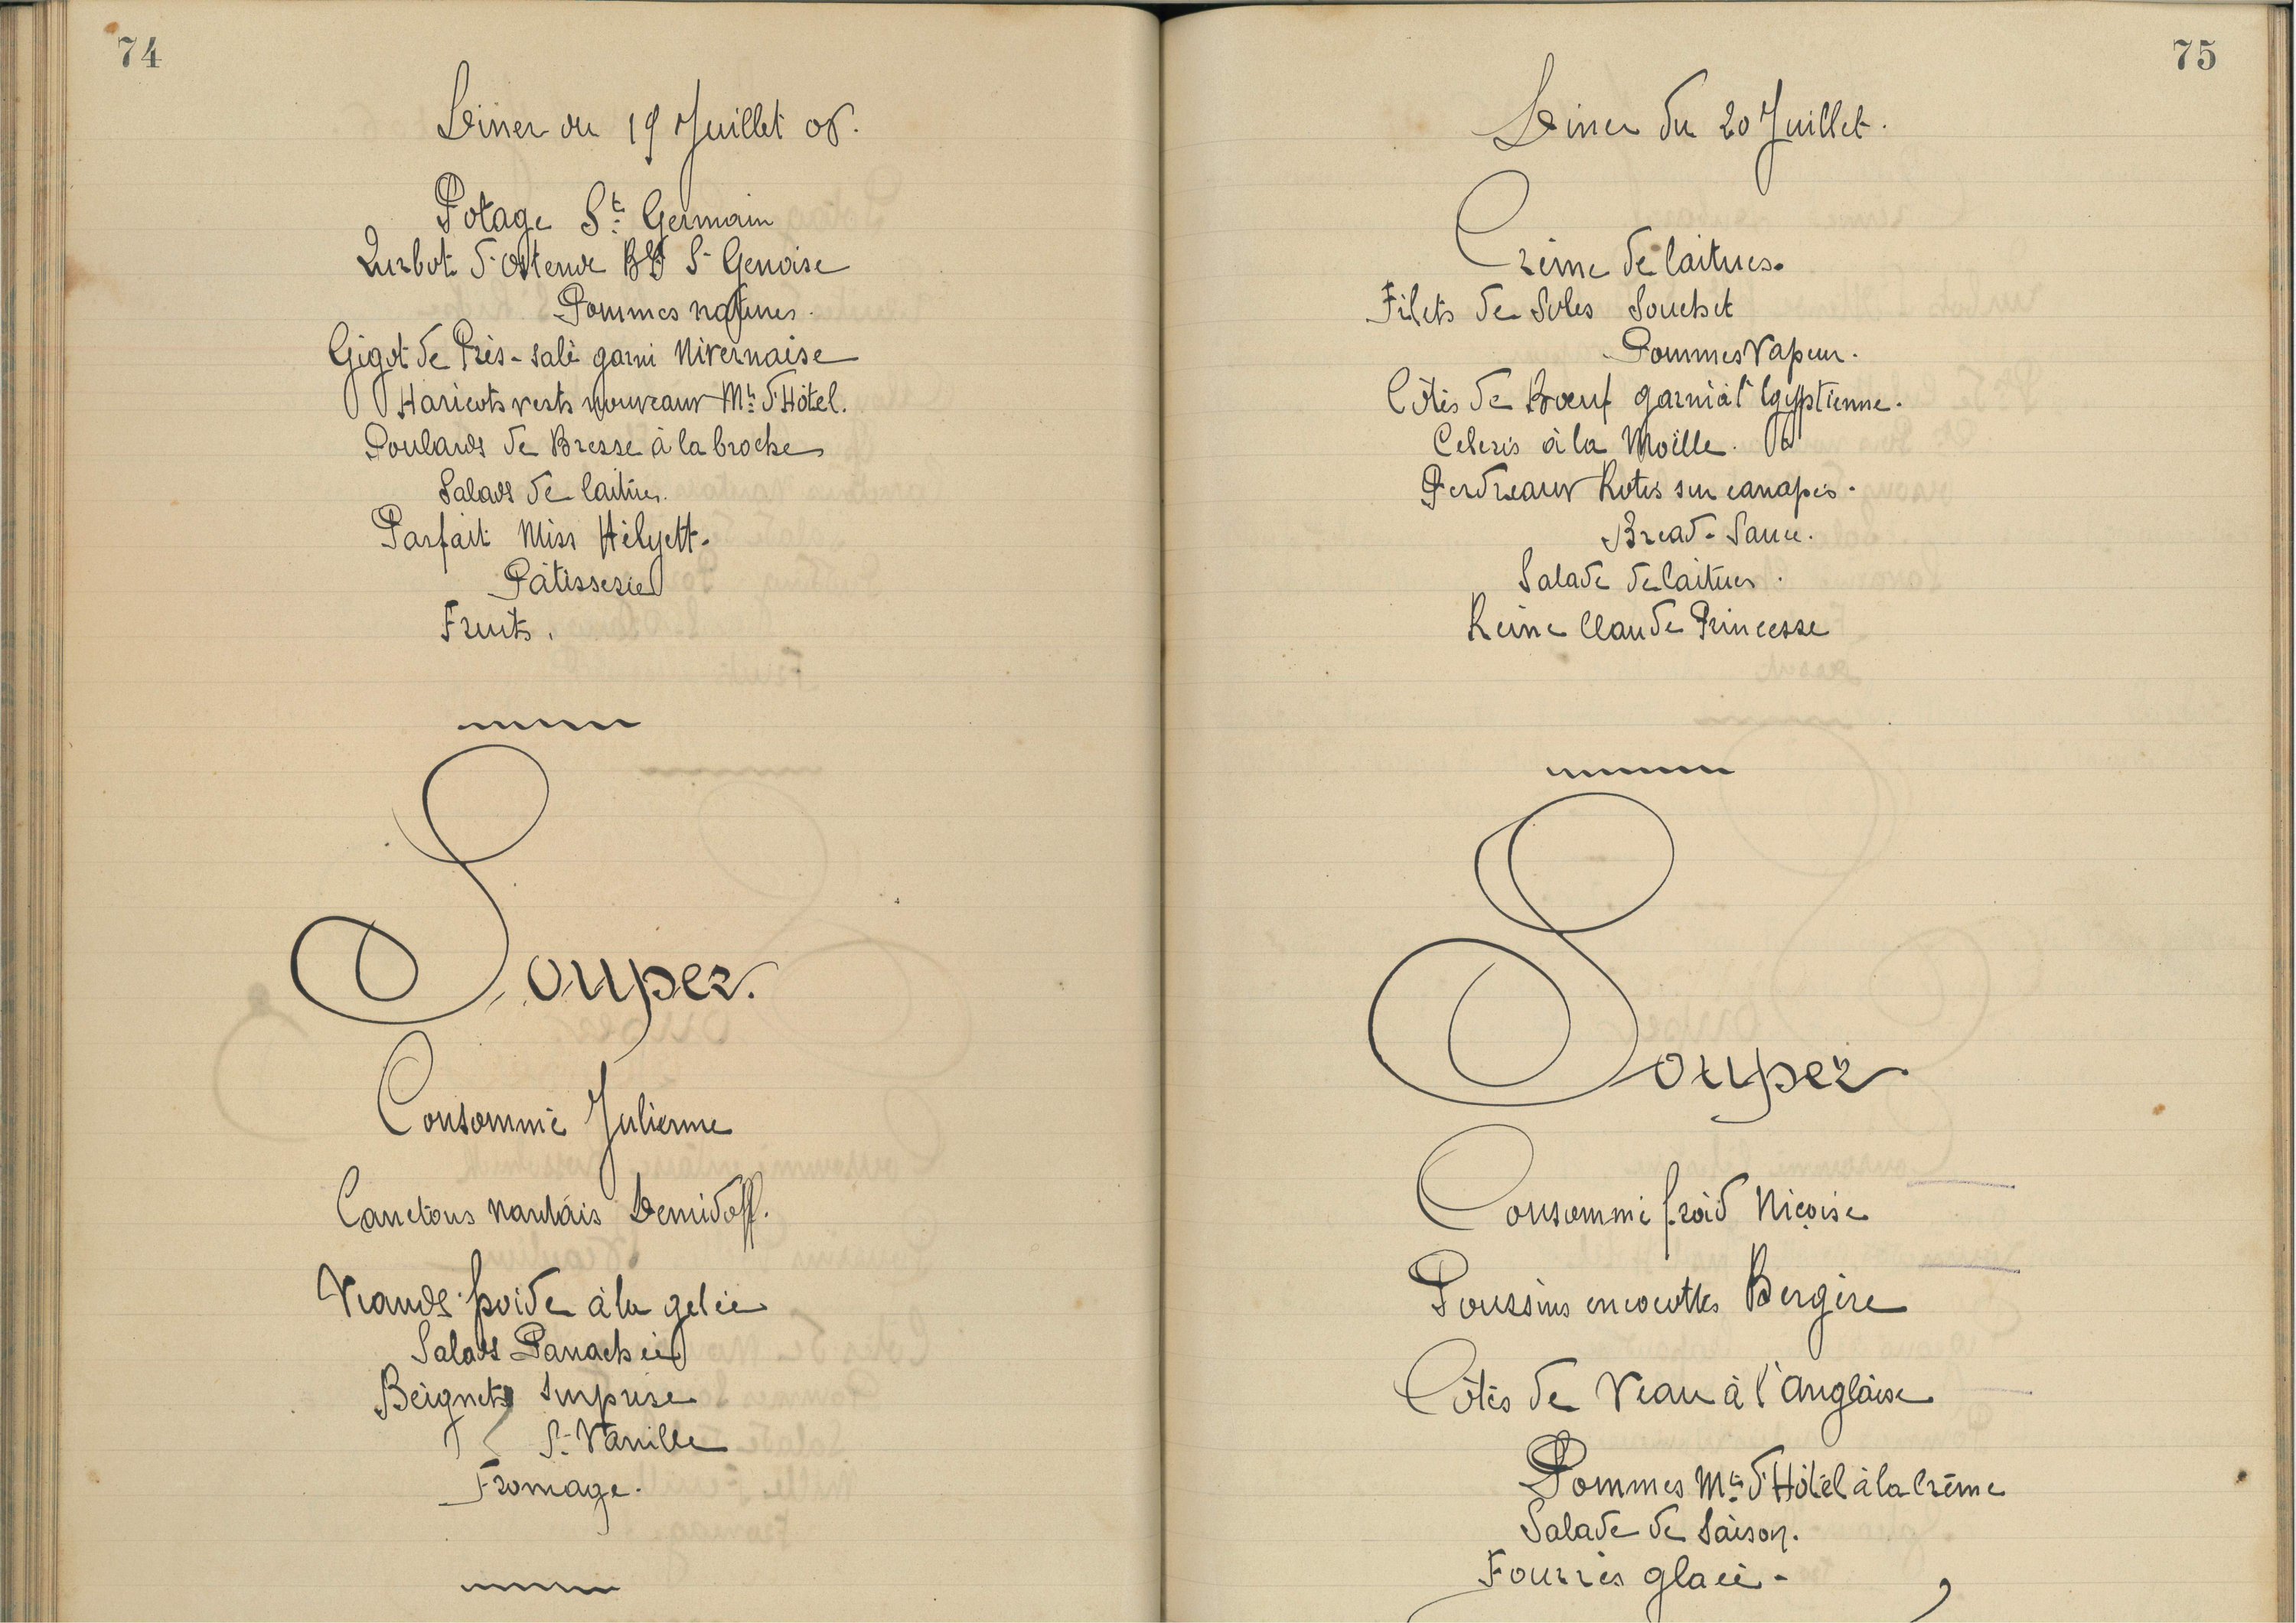 74
Diner du 19 Juillet 08.
Potage St Germain
Turbot d'Ostende Bd S- Genoise
Pommes natures.
Gigot de Près-salé garni Nivernaise
Haricots verts nouveaux Mt d'Hôtel.
Poularde de Bresse à la broche
Salade de laitues.
Parfait Miss Hélyett.
Pâtisserie
Fruits.
Souper.
Consommé Julienne
Canetons nantais Demidoff.
Viande froide à la gelée
Salade Panachée
Beignets Surprise
S- Vanille
Fromage.
75
Diner du 20 Juillet.
Crème de laitues.
Filets de Soles Souchet
Pommes Vapeur.
Côtes de Boeuf garni à l'Egyptienne.
Celeris à la Moëlle.
Perdreaux Rotis sur canapés.
Bread-Sauce.
Salade de laitues.
Reine Claude Princesse
Souper
Consommé froid Niçoise
Poussins en cocottes Bergère
Côtes de Veau à l'Anglaise
Pommes Mt d'Hôtel à la Crème
Salade de Saison.
Fourrés glacé-